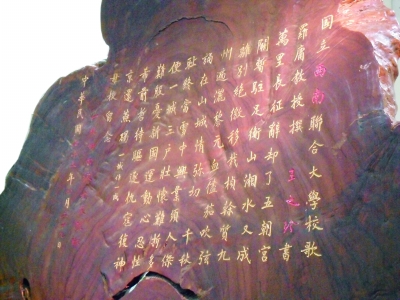 國立西南聯合大學校歌
羅庸教授撰 王元書
萬里長征辭却了五朝宮
闕暫駐足衡山湘水又成
離別絕徼移栽楨榦質九
州遍灑黎元血儘笳吹弦
誦在山城情彌切 千秋
耻終當雪中興業須人傑
便一成三戶壯懷難折多
難殷憂新國運動心忍性
希前哲待驅逐仇寇復神
京還燕碣
母校留念
中華民國年月